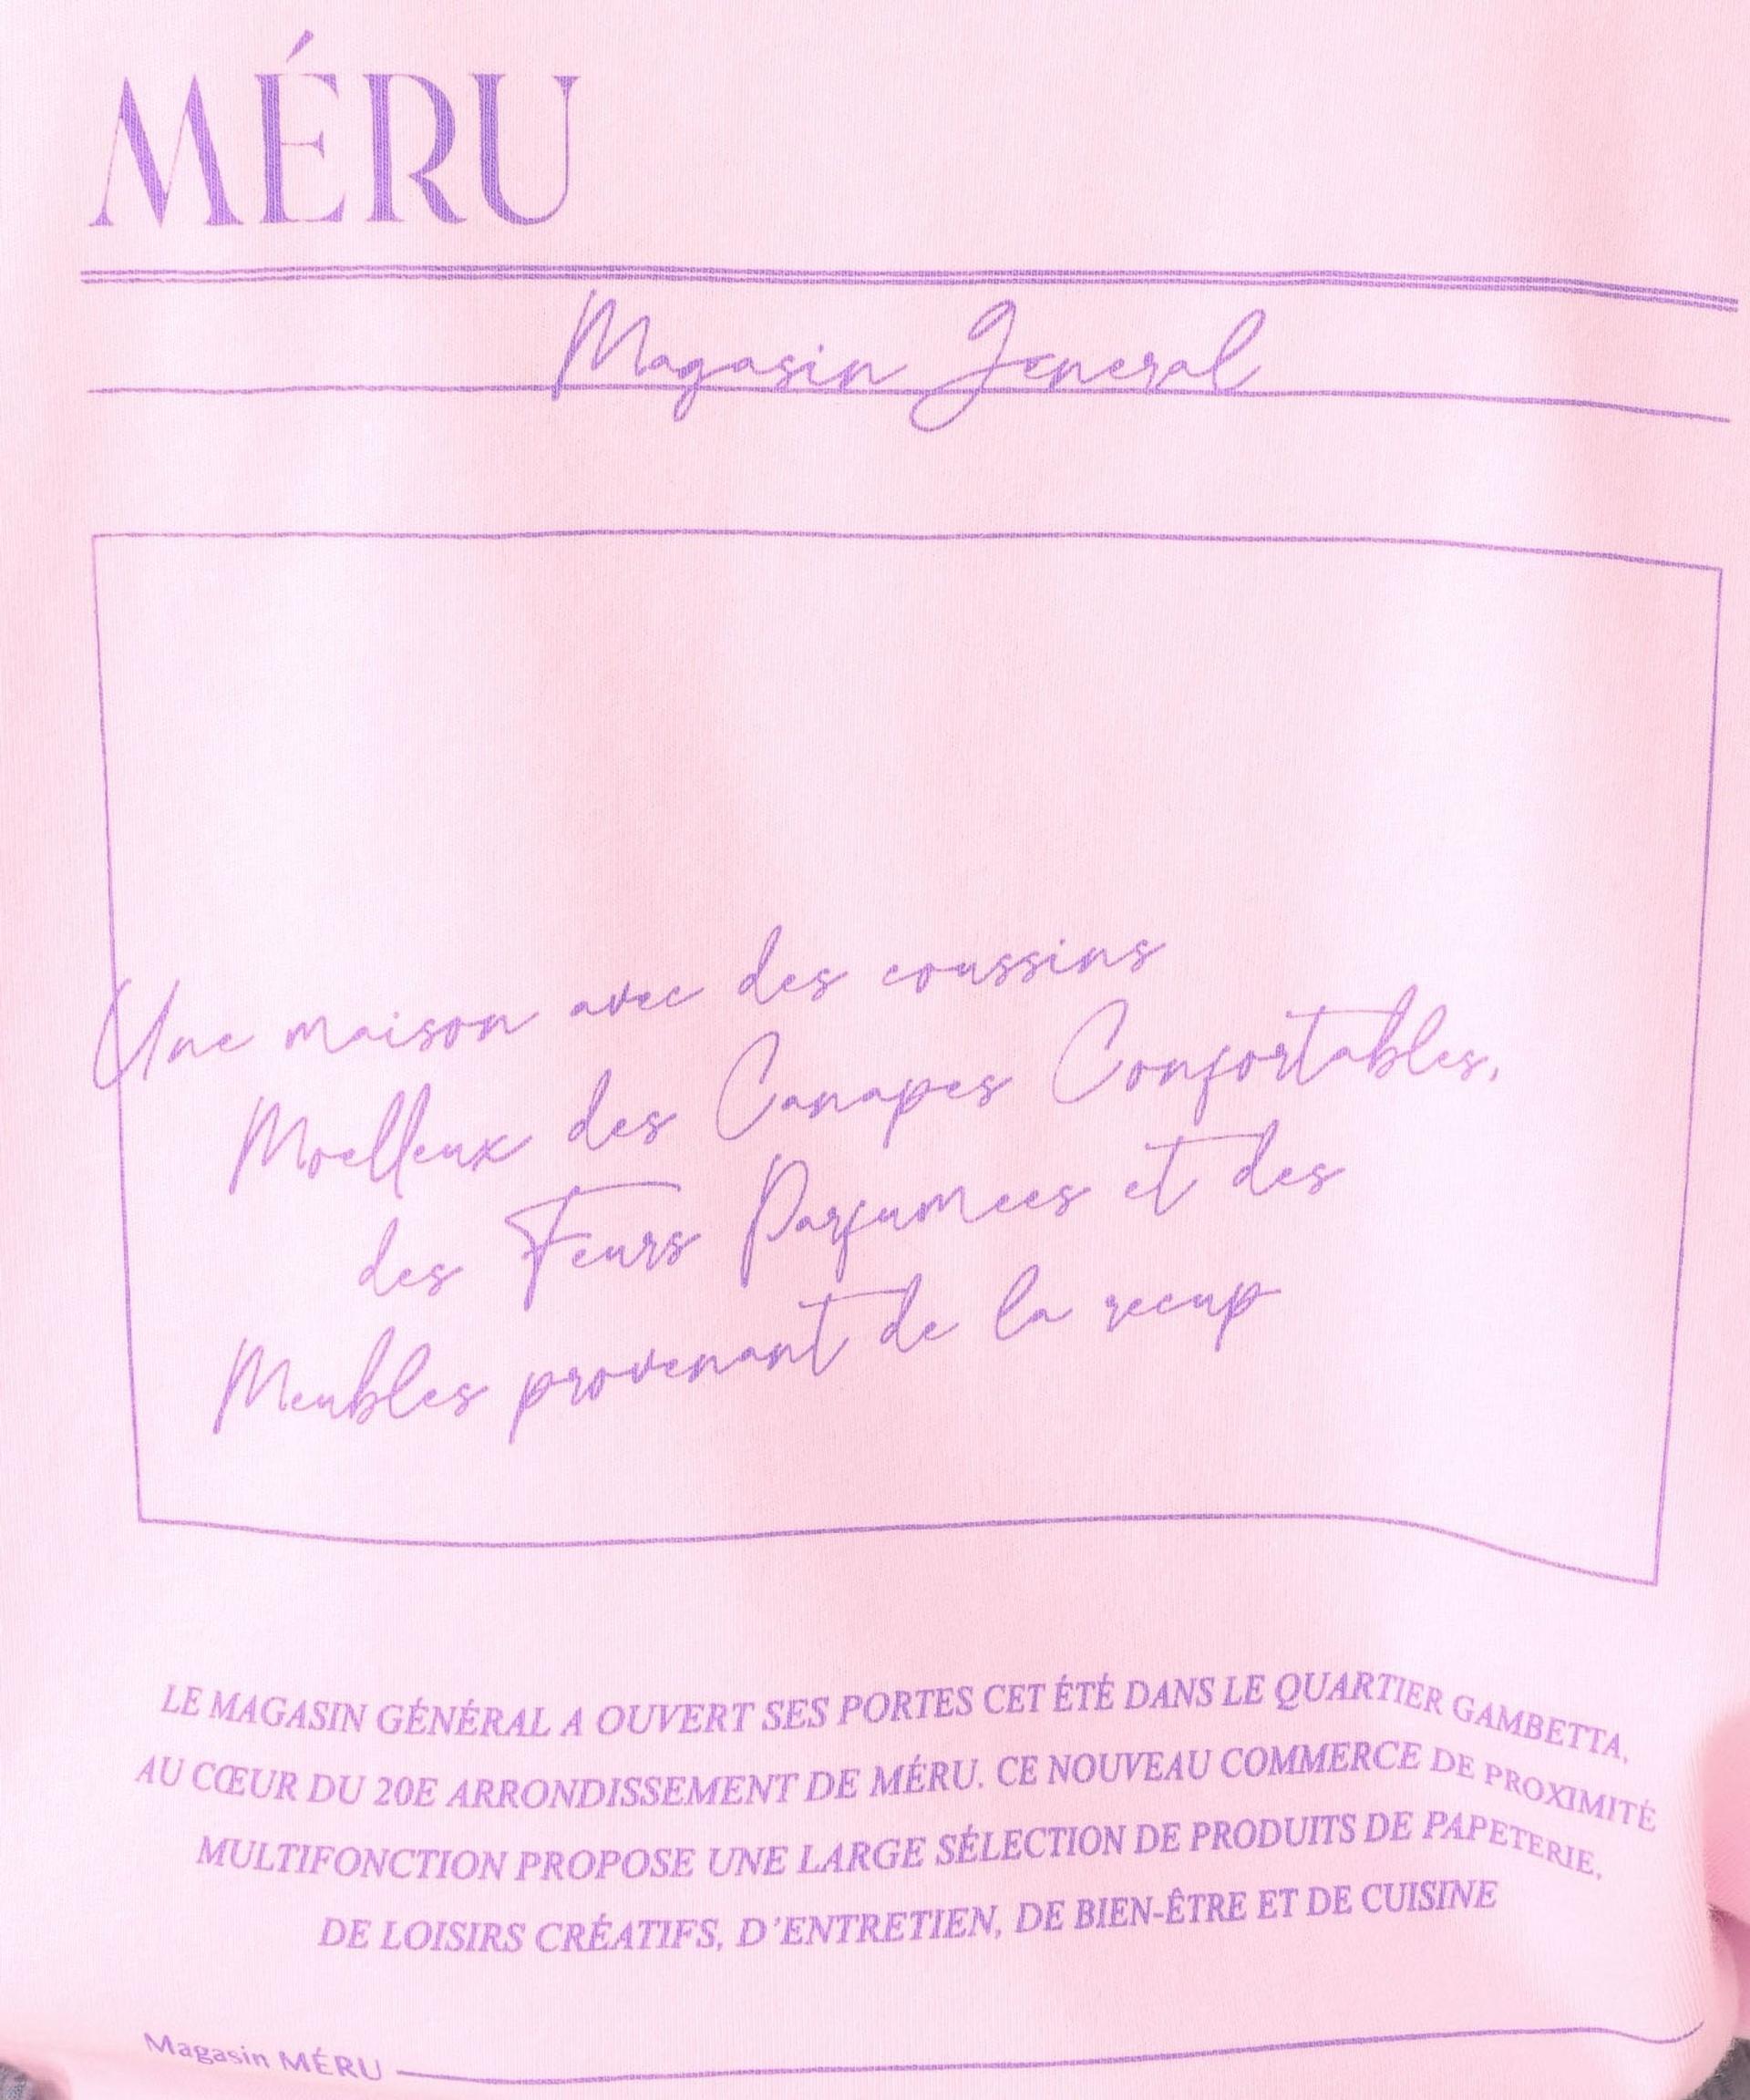 MÉRU
Magasin General
Une maison avec des coussins
Moelleux des Canapes Confortables,
des Feurs Parfumees et des
Meubles provenant de la recup
LE MAGASIN GÉNÉRAL A OUVERT SES PORTES CET ÉTÉ DANS LE QUARTIER GAMBETTA,
AU CŒUR DU 20E ARRONDISSEMENT DE MÉRU. CE NOUVEAU COMMERCE DE PROXIMITÉ
MULTIFONCTION PROPOSE UNE LARGE SÉLECTION DE PRODUITS DE PAPETERIE,
DE LOISIRS CRÉATIFS, D'ENTRETIEN, DE BIEN-ÊTRE ET DE CUISINE
Magasin MÉRU